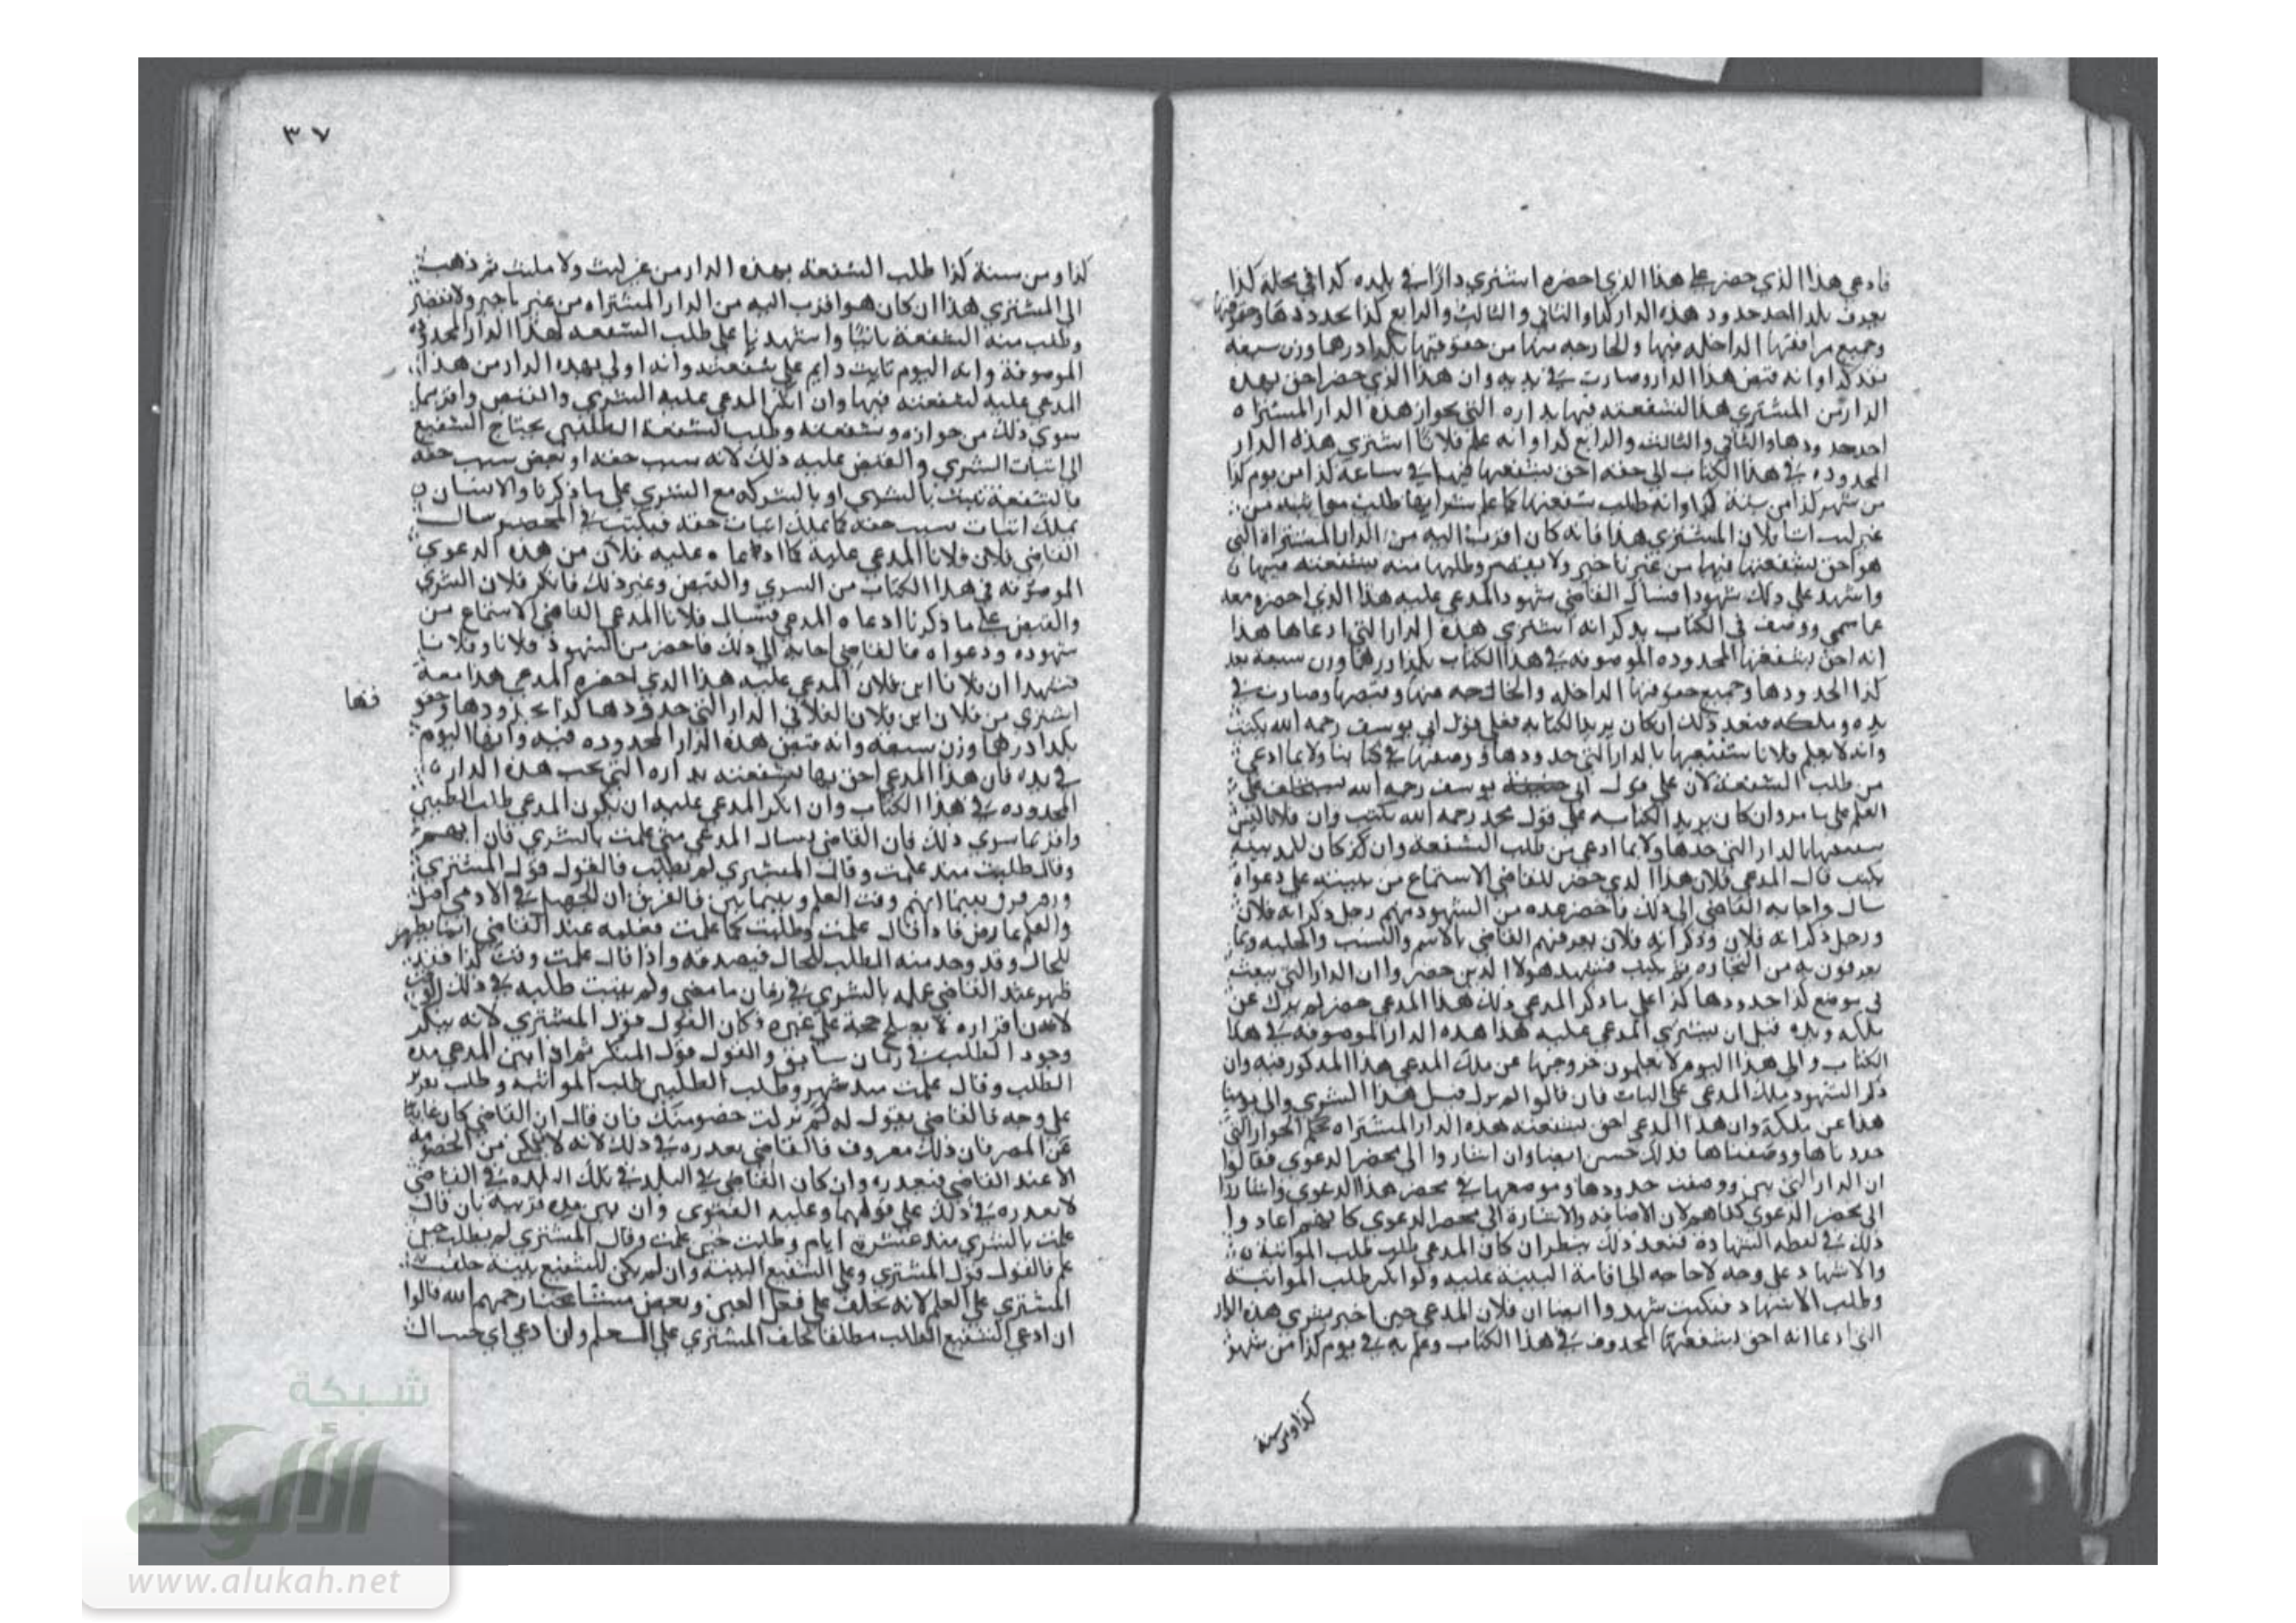 فادعي هذا الذي حضر علي هذا الذي احضره اشتري دارا في بلده كذا في محلة كذا
حدود هذه الدار كذا والثاني والثالث والرابع كذا بحدودها وحقوقها
وجميع مرافقها الداخله فيها والخارجه منها من حقوقها بكذا درهما وزن سبعه
نقد كذا وانه قبض هذا الدار وصارت في يديه وان هذا الذي حضر احق بهذه
الدار من المشتري هذا لشفعته فيها بداره التي بجوار هذه الدار المشتراه
احد حدودها والثاني والثالث والرابع كذا وانه علم فلانا اشتري هذه الدار
المحدوده في هذا الكتاب الي حقه احق بشفعتها فيها في ساعة كذا من يوم كذا
من شهر كذا من سنة كذا وانه طلب شفعتها كما علم بشرايها طلب مواثبه من
غير لبث اتا فلان المشتري هذا فانه كان اقرب اليه من الدار المشتراة التي
هو احق بشفعتها فيها من غير تاخير ولا تقصير وطلبها منه بشفعته فيها
واشهد علي ذلك شهودا فسال القاضي شهود المدعي عليه هذا الذي احضره معه
عما سمي ووصف في الكتاب بذكر انه اشتري هذه الدار التي ادعاها هذا
انه احق بشفعتها المحدوده الموصوفه في هذا الكتاب بكذا درهما وزن سبعة نقد
كذا الحدودها وجميع حقوقها الداخله والخارجه منها وقبضها وصارت في
يده وملكه فبعد ذلك ان كان يريد الكتابه فعلي قول ابي يوسف رحمه الله يكتب
وانه لا يعلم فلانا شفيعها بالدار التي حدودها ووصفها في كتابنا ولا بما ادعي
من طلب الشفعة لان علي قول ابي يوسف رحمه الله يستحلف علي
العلم علي ما مر وان كان يريد الكتابه علي قول محمد رحمه الله يكتب وان فلانا ليس
شفيعها بالدار التي حدها ولا بما ادعي من طلب الشفعة وان ذكر كان للمدعي بينة
يكتب قال المدعي فلان هذا الذي حضر للقاضي الاستماع من بينته علي دعواه
سال واجابه القاضي الي ذلك فاحضر عده من الشهود منهم رجل ذكر انه فلان
ورجل ذكر انه فلان وذكر انه فلان يعرفهم القاضي بالاسم والنسب والحليه وبما
يعرفون به من التجاره ثم يكتب فشهد هولا الذين حضروا ان الدار التي ببعث
في موضع كذا حدودها كذا علي ما ذكر المدعي ذلك هذا المدعي حضر لم يزل عن
ملكه ويده قبل ان يشتري المدعي عليه هذا هذه الدار الموصوفه في هذا
الكتاب والي هذا اليوم لا يعلمون خروجها عن ملك المدعي هذا المذكور فيه وان
ذكر الشهود ملك المدعي علي البات فان قالوا لم يزل قبل هذا الشري والي يومنا
هذا عن ملكه وان هذا المدعي احق بشفعته هذه الدار المشتراه بحكم الجوار التي
حددناها ووصفناها فذلك حسن ايضا وان اشاروا الي محضر الدعوي فقالوا
ان الدار التي بين ووصفت حدودها وموضعها في محضر هذا الدعوي واشاروا
الي محضر الدعوي كفاهم لان الاضافه والاشارة الي محضر الدعوي كانهم اعادوا
ذلك في لفظه الشهادة فبعد ذلك ينظر ان كان المدعي طلب طلب المواثبة
والاشهاد علي وجه لا حاجه الي اقامة البينة عليه ولو انكر طلب المواثبة
وطلب الاشهاد فيكتب شهدوا ايضا ان فلان المدعي حين اخبر بشري هذه الدار
التي ادعا انه احق بشفعتها المحدوف في هذا الكتاب وعلم به في يوم كذا من شهر
كذا ومن سنة
٣٧
كذا ومن سنة كذا طلب الشفعة بهذه الدار من غير لبث ولا مكث ثم ذهب
الي المشتري هذا ان كان هو اقرب اليه من الدار المشتراه من غير تاخير ولا تقصير
وطلب منه الشفعة ثانيا واشهدنا علي طلب الشفعه لهذا الدار المحدوده
الموصوفة وانه اليوم ثابت دايم علي شفعته وانه اولي بهذه الدار من هذا
المدعي عليه لشفعته فيها وان انكر المدعي عليه الشري والقبض واقر بما
سوي ذلك من جواره وشفعته وطلب الشفعة الطلبين يحتاج الشفيع
الي اثبات الشري والقبض عليه ذلك لانه سبب حقه او بعض سبب حقه
فالشفعة تثبت بالشري او بالشركه مع الشري علي ما ذكرنا والانسان
يملك اثبات سبب حقه كما يملك اثبات حقه فيكتب في المحضر سال
القاضي فلان فلانا المدعي عليه كما ادعاه عليه فلان من هذه الدعوي
الموصوفه في هذا الكتاب من الشري والقبض وغير ذلك فانكر فلان الشري
والقبض علي ما ذكرنا ادعاه المدعي فسال فلانا المدعي القاضي الاستماع من
شهوده ودعواه فالقاضي اجابه الي ذلك فاحضر من الشهود فلانا وفلانا
فشهدا ان فلانا ابن فلان المدعي عليه هذا الذي احضره المدعي هذا معه
اشتري من فلان ابن فلان الفلاني الدار التي حدودها كذا بحدودها وحقو
قها
بكذا درهما وزن سبعه وانه قبض هذه الدار المحدوده فيه وانها اليوم
في يده فان هذا المدعي احق بها بشفعته بداره التي بجنب هذه الدار
المحدوده في هذا الكتاب وان انكر المدعي عليه ان يكون المدعي طلب الطلبين
واقر بما سوي ذلك فان القاضي يسال المدعي متي علمت بالشري فان ابهم
وقال طلبت منذ علمت وقال المشتري لم تطلب فالقول قول المشتري
وفرق بينما ابهم وقت العلم وبينما بين فالفرق ان الجهل في الادمي اصل
والعلم عارض فاذا قال علمت وطلبت كما علمت فعلمه عند القاضي انما يظهر
للحال وقد وجد منه الطلب للحال فيصدقه واذا قال علمت وقت كذا فقد
ظهر عند القاضي علمه بالشري في زمان ما مضي ولم يثبت طلبه في ذلك الوقت
لان اقراره لا يصلح حجة علي غيره فكان القول قول المشتري لانه ينكر
وجود الطلب في زمان سابق والقول قول المنكر ثم اذا بين المدعي مدة
الطلب وقال علمت منذ شهر وطلب الطلبين طلب المواثبه وطلب تقرير
علي وجه فالقاضي يقول له لم تركت خصومتك فان قال ان القاضي كان غايبا
عن المصر فان ذلك معروف فالقاضي يعذره في ذلك لانه لا يمكن من الخصومه
الا عند القاضي فيعذره وان كان القاضي في البلد في تلك المده في القاضي
لا يعذره في ذلك علي قولهما وعليه الفتوي وان بين مده قريبه بان قال
علمت بالشري منذ عشرة ايام وطلبت حين علمت وقال المشتري لم يطلب حين
علم فالقول قول المشتري وعلي الشفيع البينه وان لم يكن للشفيع بينة حلف
المشتري علي العلم لانه يحلف علي فعل الغير وبعض مشايخنا رحمهم الله قالوا
ان ادعي الشفيع الطلب مطلقا يحلف المشتري علي العلم وان ادعي
شبكة
الألوكة
www.alukah.net